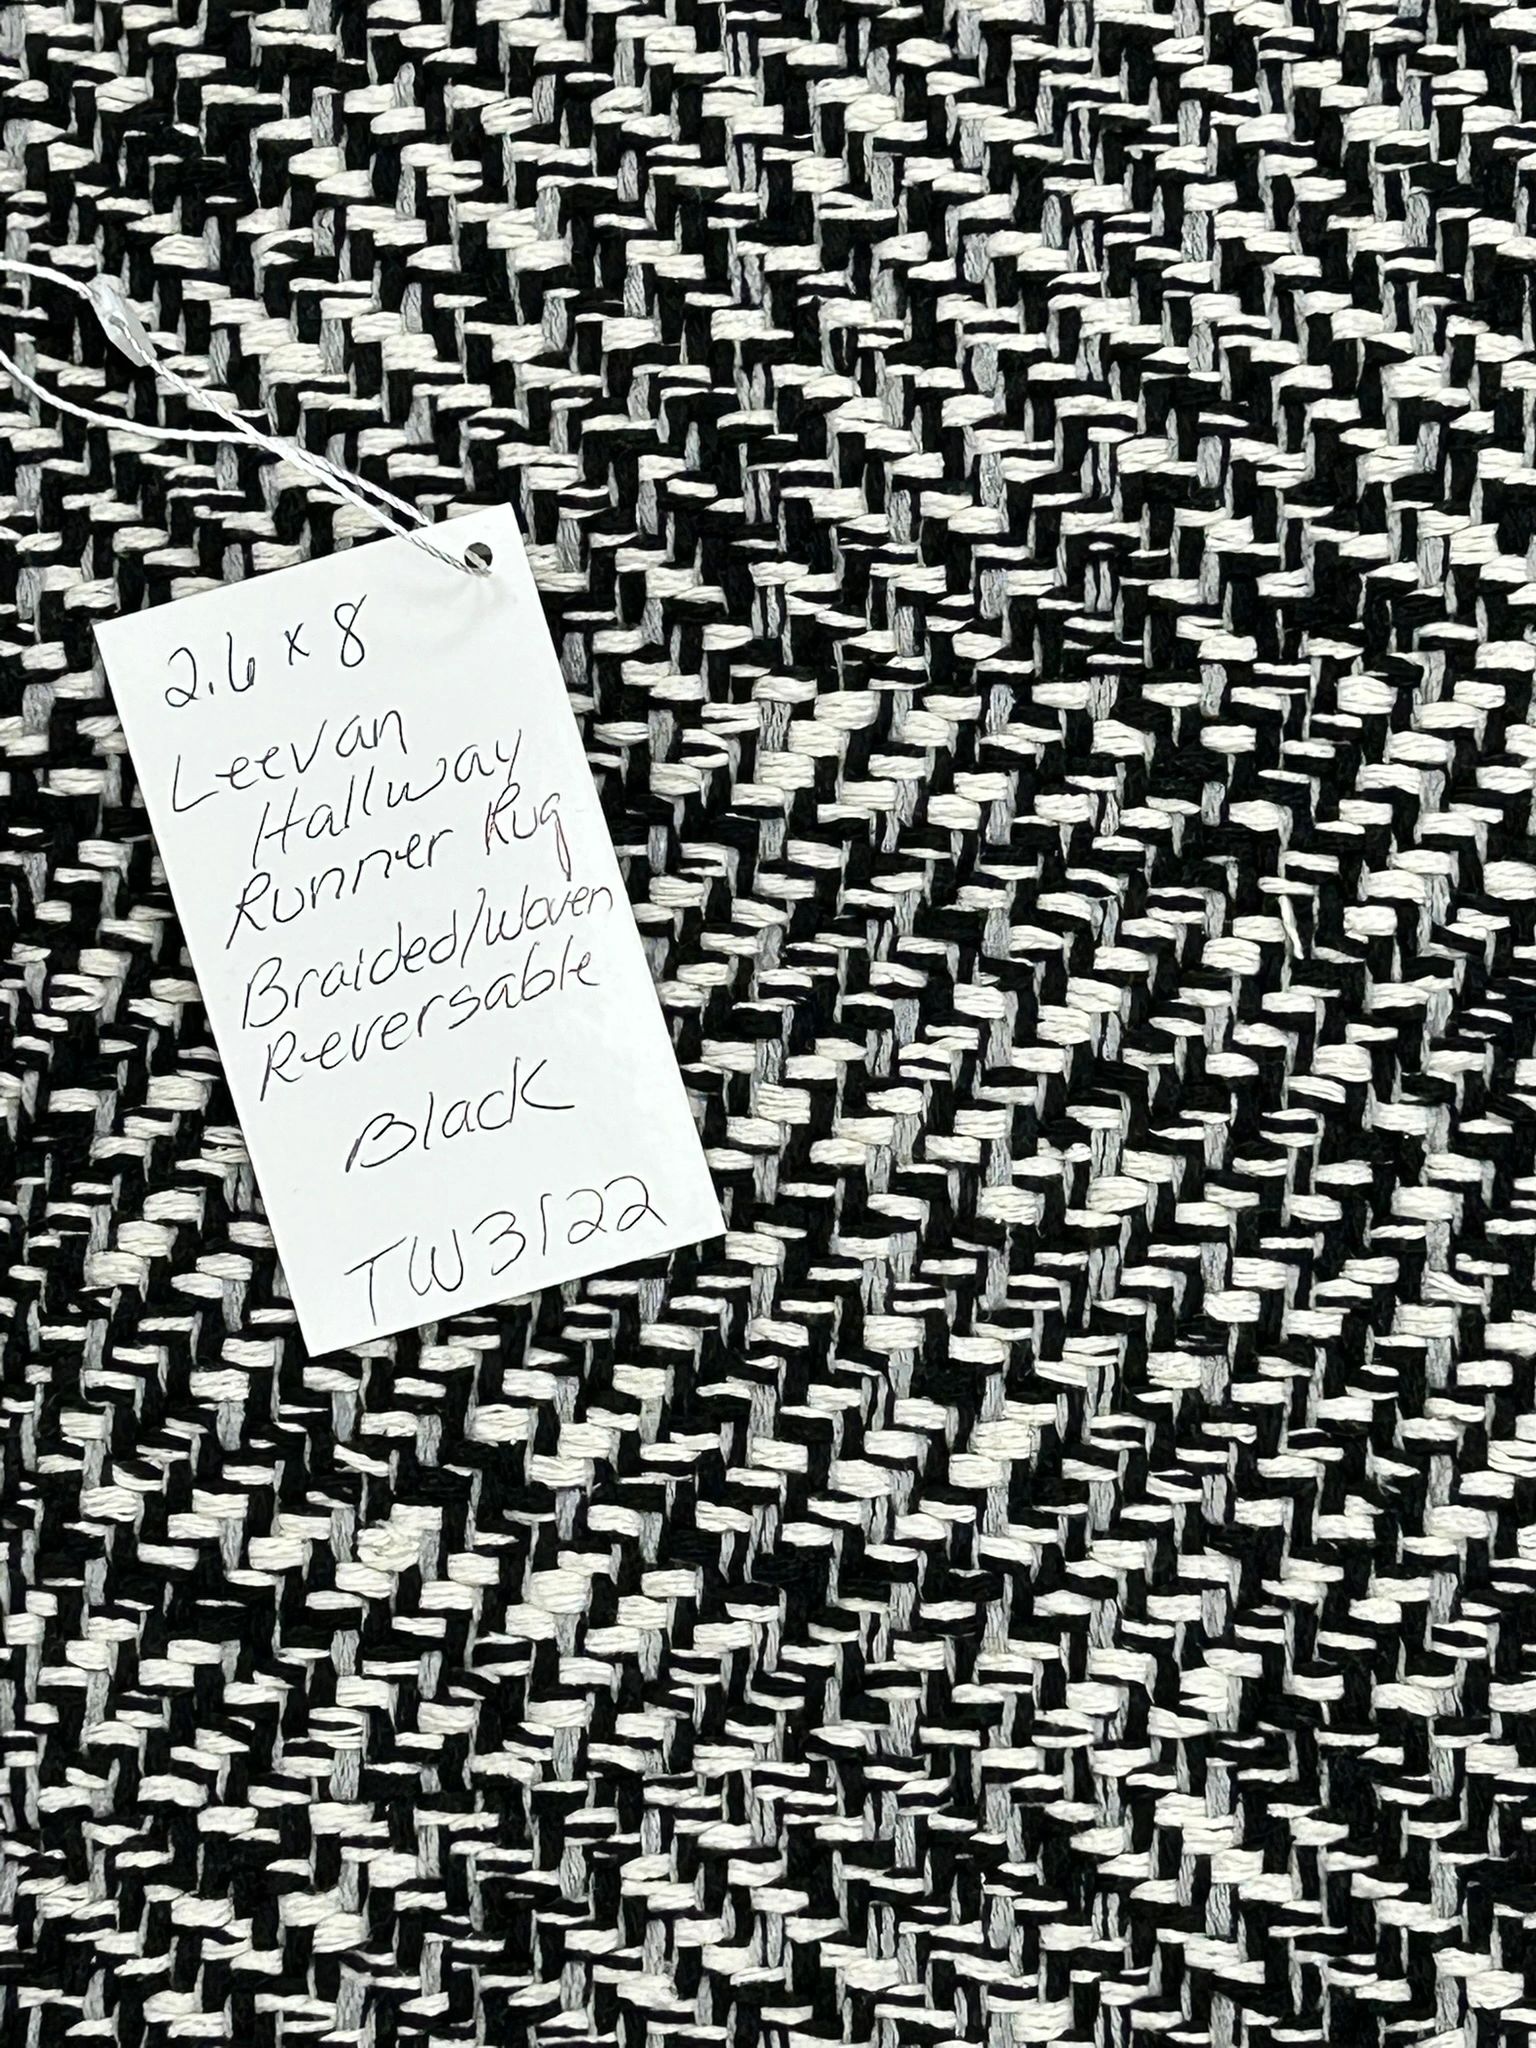 2.6 x 8
Leevan
Hallway
Runner Rug
Braided/Woven
Reversable
Black
TW3122